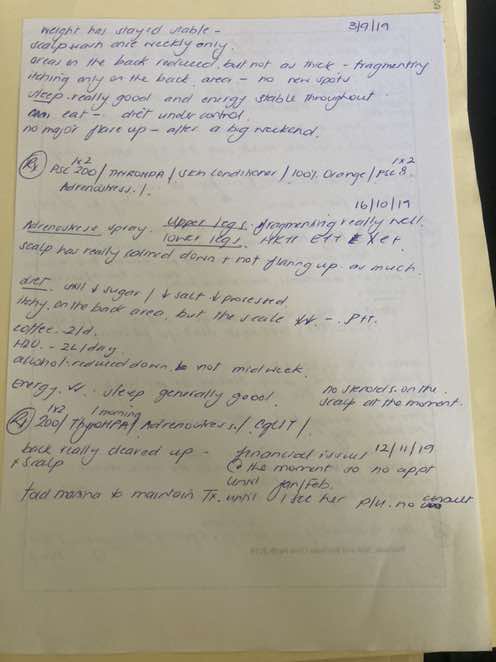 weight has stayed stable - 3/9/19
scalp wash once weekly only.
areas on the back reduced, but not as thick - fragmenting
itching only on the back area - no new spots
sleep really good and energy stable throughout
eat - diet under control.
no major flare up - after a big weekend.
Rx PSC 200 1x2 / THYROHPA / Skin Conditioner / 100% Orange / PSC 8 1x2
Adrenostress /.
16/10/19
Adrenostress spray. Upper legs. fragmenting really well.
lower legs.
scalp has really calmed down + not flaring up as much.
diet. still ↓ sugar / ↓ salt ↓ processed.
itchy, on the back area, but the scale ↓↓. -
coffee. 2/d.
H2O. - 2L/day.
alcohol. reduced down. not midweek.
Energy. ✓✓. sleep generally good. no steroids on the
scalp at the moment.
Rx 200 1x2 / ThyroHPA 1 morning / Adrenostress. /
back really cleared up - financial issues 12/11/19
+ scalp @ the moment so no appt
until Jan/Feb.
told marina to maintain Tx. until I see her p/u. no consult